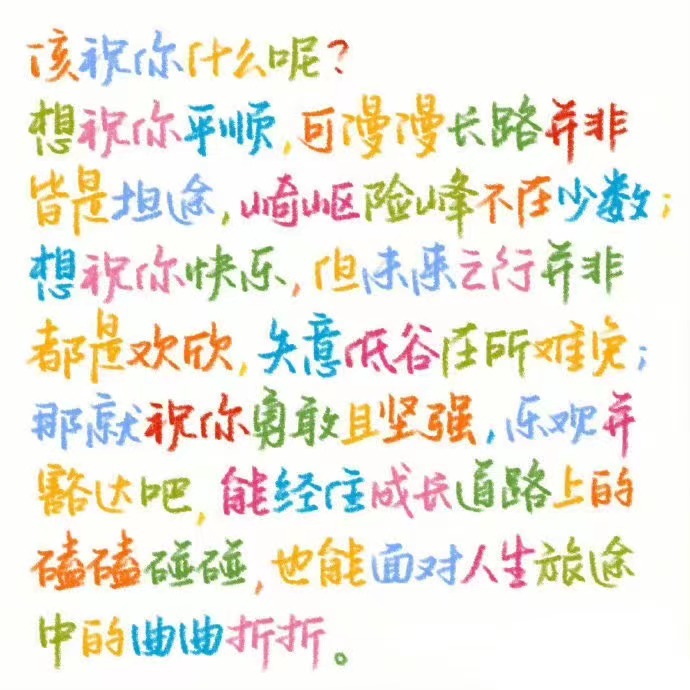 该祝你什么呢？
想祝你平顺,可漫漫长路并非
皆是坦途,崎岖险峰不在少数；
想祝你快乐,但未来之行并非
都是欢欣,失意低谷在所难免；
那就祝你勇敢且坚强,乐观并
豁达吧,能经住成长道路上的
磕磕碰碰,也能面对人生旅途
中的曲曲折折。